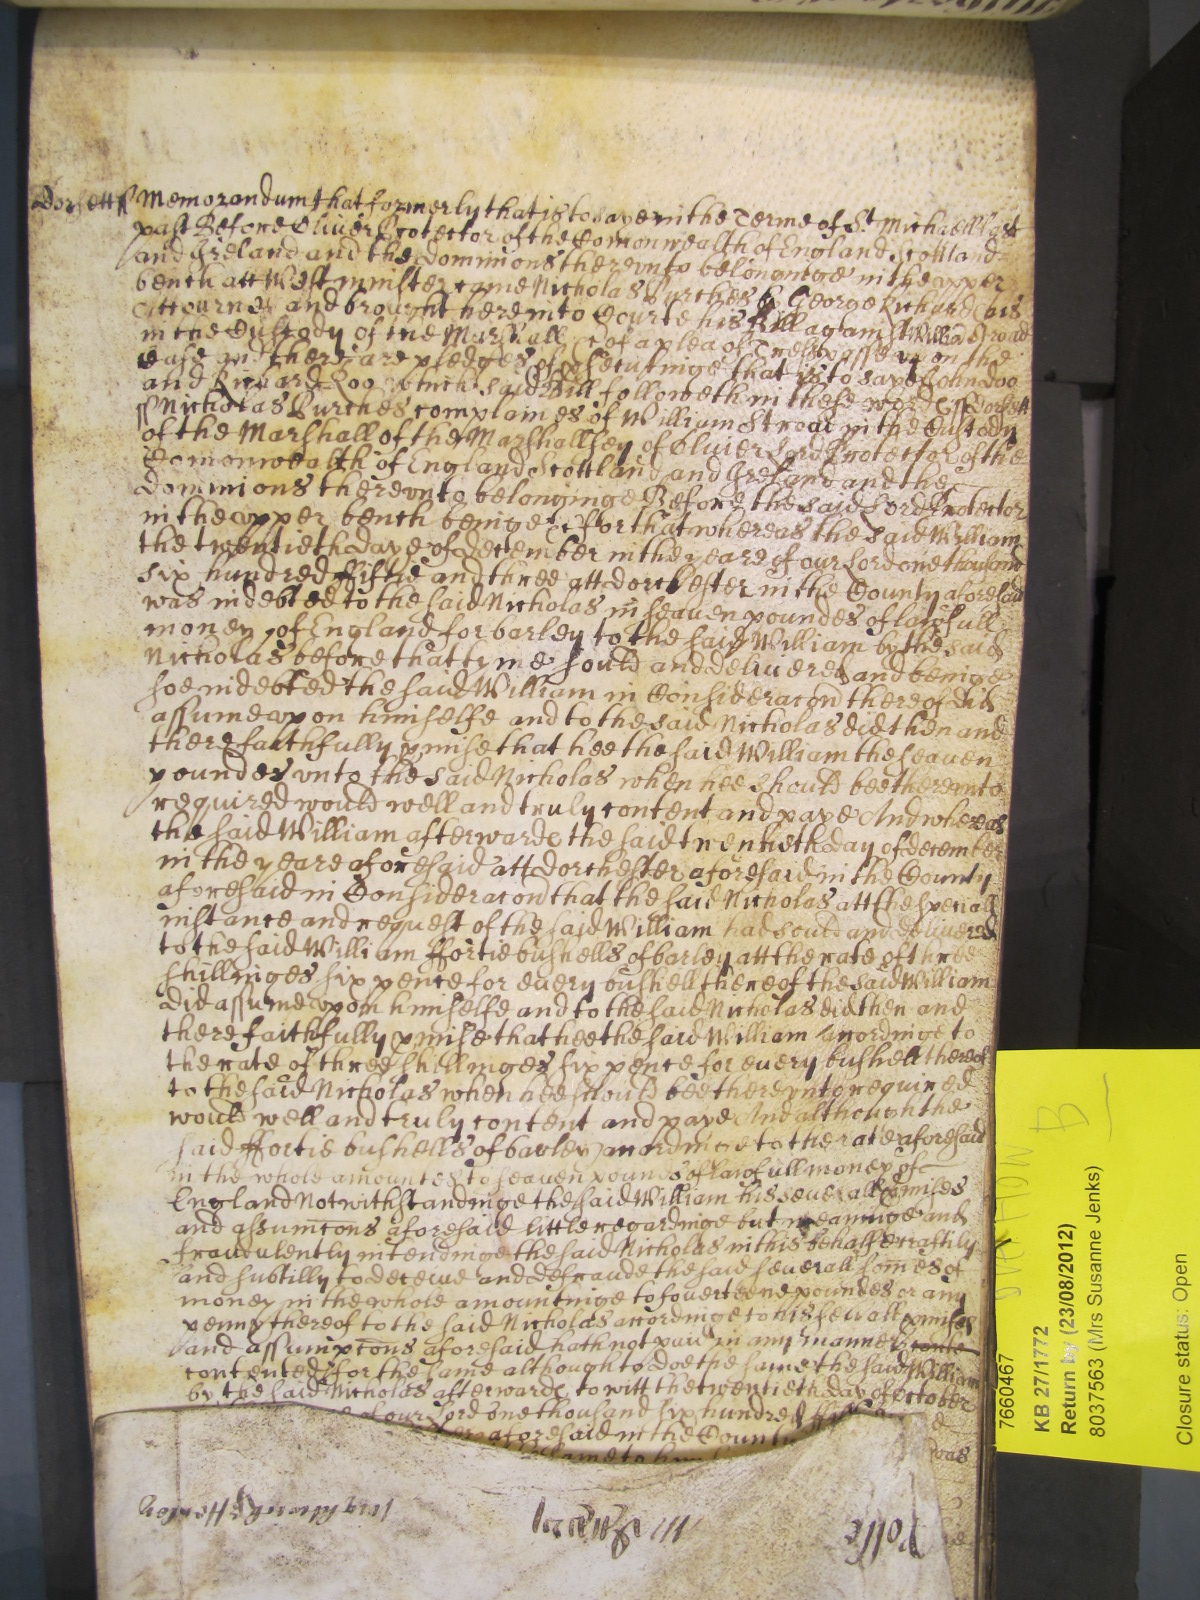 Dorsett ss Memorandum that formerly that is to saye in the Terme of St. Michaell last
past Before Oliver Protector of the Comonwealth of England Scottland
and Ireland and the dominions thereunto belonginge in the upper
bench att Westminster came Nicholas Purches by George Richard his
Attourney and brought here into Court his Bill against William Stroad
in the Custody of the Marshall &c of a plea of Trespasse upon the
case and there are pledges of prosecutinge that is to saye John Doo
and Richard Roo which said Bill followeth in these words ss Dorsett
ss Nicholas Purches complaines of William Stroad in the Custody
of the Marshall of the Marshallsey of Oliver Lord Protector of the
Comonwealth of England Scottland and Ireland and the
dominions thereunto belonginge Before the said Lord Protector
in the upper bench beinge &c ffor that whereas the said William
the twentieth daye of december in the yeare of our Lord one thousand
six hundred ffiftie and three att dorchester in the County aforesaid
was indebted to the said Nicholas in seaven poundes of lawfull
money of England for barley to the said William by the said
Nicholas before that tyme sould and delivered and beinge
soe indebted the said William in Consideracon thereof did
assume upon himselfe and to the said Nicholas did then and
there faithfully pmise that hee the said William the seaven
poundes unto the said Nicholas when hee should bee thereunto
required would well and truly content and paye And whereas
the said William afterwards the said twentieth day of december
in the yeare aforesaid att dorchester aforesaid in the County
aforesaid in Consideracon that the said Nicholas att the speciall
instance and request of the said William had sould and delivered
to the said William ffortie bushells of barley att the rate of three
shillinges six pence for every bushell thereof the said William
did assume upon himselfe and to the said Nicholas did then and
there faithfully pmise that hee the said William accordinge to
the rate of three shillinges six pence for every bushell thereof
to the said Nicholas when hee should bee thereunto required
would well and truly content and paye And although the
said ffortie bushells of barley accordinge to the rate aforesaid
in the whole amounted to seaven pounds of lawfull money of
England Notwithstandinge the said William his severall pmises
and assumcons aforesaid little regardinge but meaninge and
fraudulently intendinge the said Nicholas in this behalfe craftily
and subtilly to deceive and defraude the said severall somes of
money in the whole amountinge to fowerteene poundes or any
penny thereof to the said Nicholas accordinge to his severall pmises
and assumpcons aforesaid hath not paid in any manner conte
contented for the same although to doe the same the said William
by the said Nicholas afterwards to witt the twentieth day of October
of our Lord one thousand six hundred
aforesaid in the County
was
Rolle
7660467
KB 27/1772
Return by (23/08/2012)
8037563 (Mrs Susanne Jenks)
Closure status: Open
B